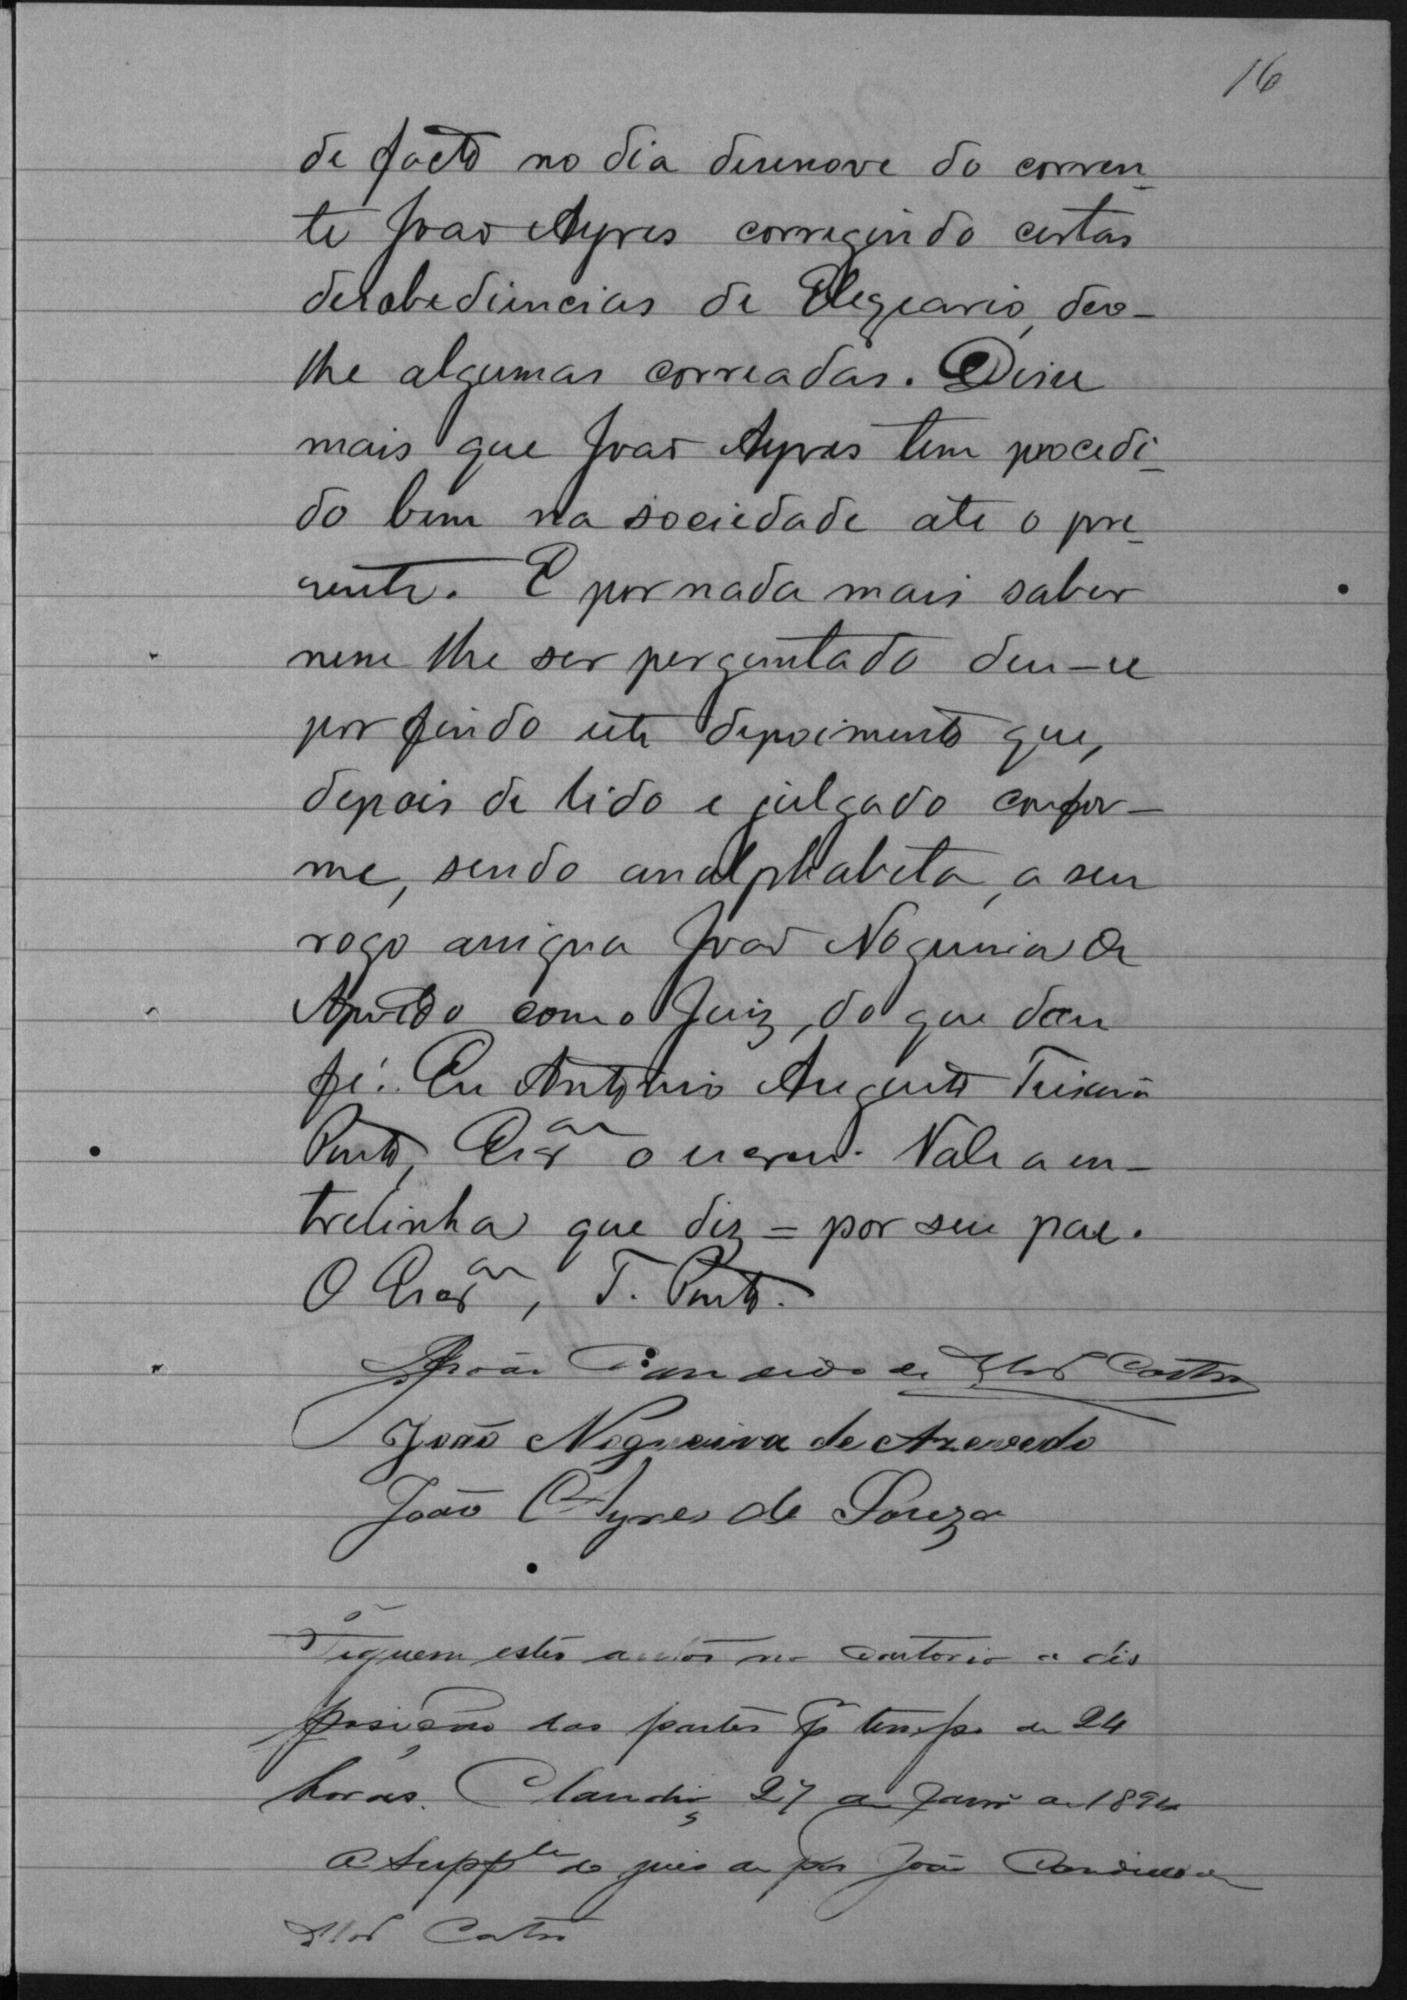 16
de facto no dia desenove do corren-
te João Ayres corregindo certas
desobediencias de Olegario, deo-
lhe algumas correadas. Disse
mais que João Ayres tem procedi-
do bem na sociedade ate o pre-
sente. E por nada mais saber
nem lhe ser perguntado deu-se
por findo este depoimento que,
depois de lido e julgado confor-
me, sendo analphabeta, a seu
rogo assigna João Nogueira de
Azevedo com o Juiz, do que dou
fé. Eu Antonio Augusto Teixeira
Porto, Escr.am o escrevi. Vale a en-
trelinha que diz = por seu pae.
O Escr.am, T. Porto.
João Candido de Castro
João Nogueira de Azevedo
João Ayres de Souza
Fiquem estes autos no Cartorio a dis
posição das partes pr tempo de 24
horas. Claudio, 27 de Janro de 1894
O Suppte do juis de pas João Candido de
Castro